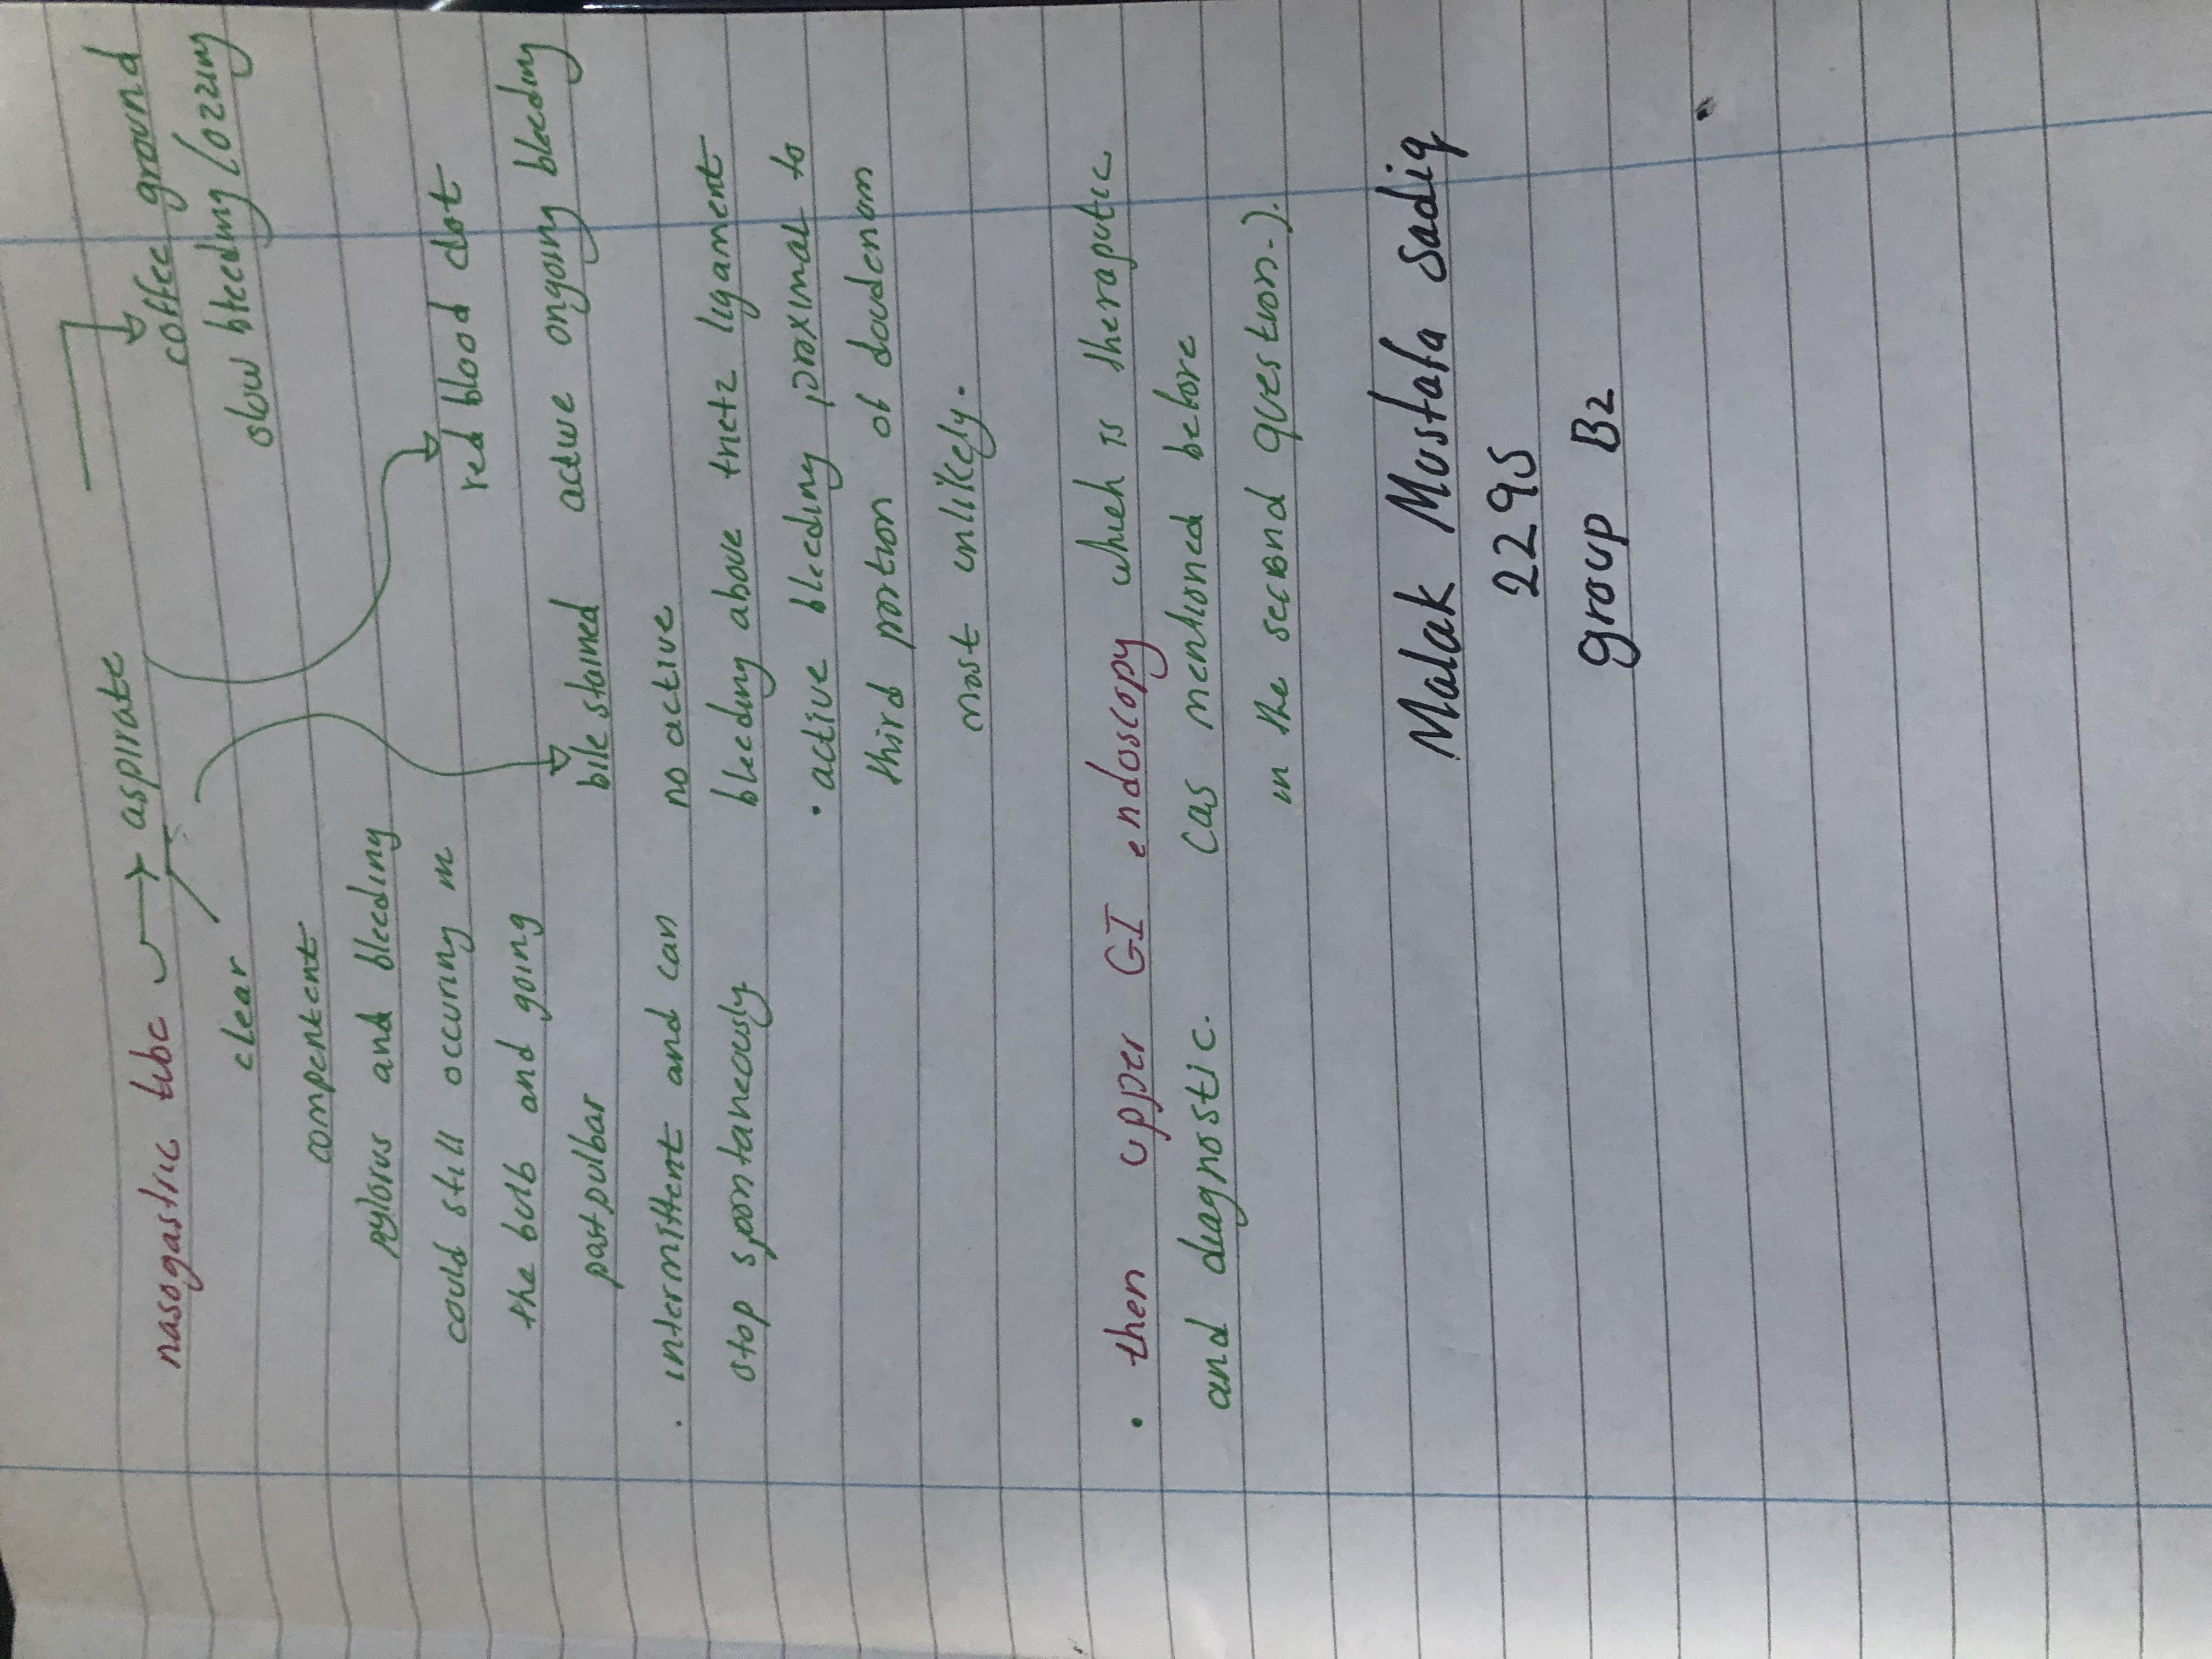 nasogastric tube → aspirate
coffee ground
slow bleeding / ozzing
clear
red blood clot
active ongoing bleeding
compentent
pylorus and bleeding
could still occuring in
the bulb and going
postpulbar
. intermittent and can
stop spontaneously
bile stained
no active
bleeding above trietz ligament
• active bleeding proximal to
third portion of doudenum
most unlikely.
• then upper GI endoscopy which is theraputic
and diagnostic. (as mentioned before
in the second question.).
Malak Mustafa sadiq
2295
group B2